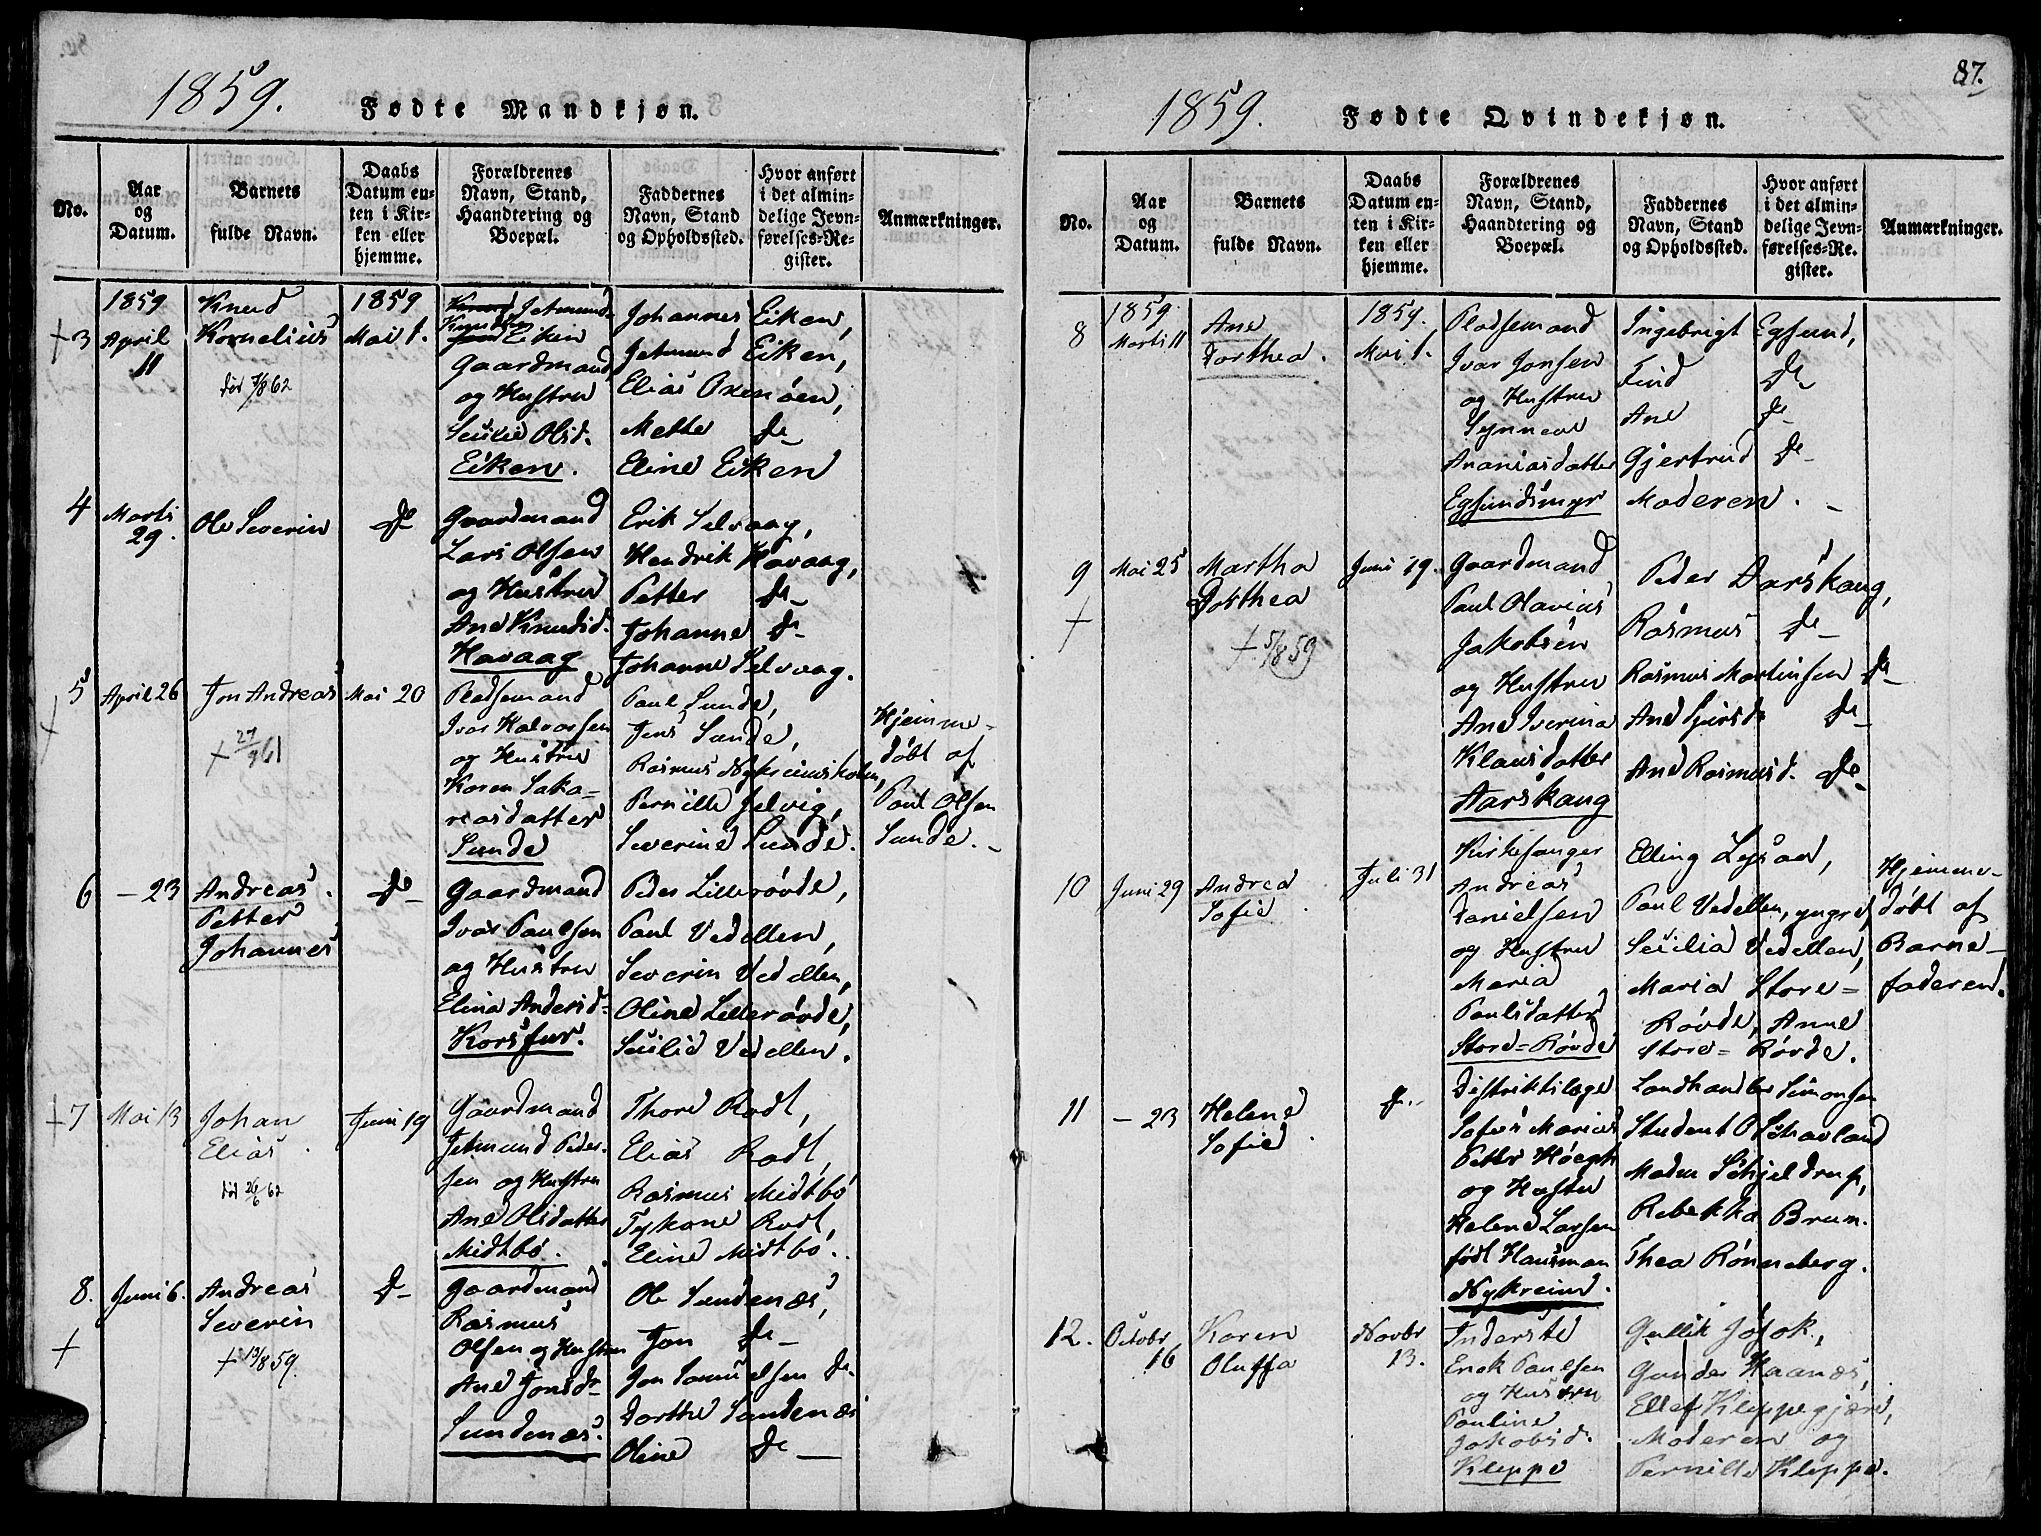 1859.
Fødte Mandkjøn.
No.
Aar og Datum.
Barnets fulde Navn.
Daabs Datum enten i Kirken eller hjemme.
Forældrenes Navn, Stand, Haandtering og Boepæl.
Faddernes Navn, Stand og Opholdssted.
Hvor anført i det almindelige Jevnførelses-Register.
Anmærkninger.
+3
1859
April
11
Knud
Kornelius
død 7/8 62
1859
Mai 1.
Jetmund
Knudsen
Eiken
Gaardmand
og Hustru
Secilie Olsd.
Eiken.
Johannes Eiken,
Jetmund Eiken,
Elias Oxenøen,
Mette De
Eline Eiken
4
Marti
29.
Ole Severin
De
Gaardmand
Lars Olsen
og Hustru
Ane Knudsd.
Havaag
Erik Selvaag,
Hendrik Havaag,
Petter De
Johanne De
Johanne Selvaag.
5
+
April 26
Jon Andreas
+ 27/9 61
Mai 20
Pladsemand
Ivar Halvorsen
og Hustru
Karen Saka=
riasdatter
Sunde
Paul Sunde,
Jens Sunde,
Rasmus Nykreimsholm,
Pernille Jelvig,
Severine Sunde.
Hjemme-
døbt af
Paul Olsen
Sunde.
6
- 23
Andreas
Petter
Johannes
De
Gaardmand
Ivar Paulsen
og Hustru
Elina Andersd=
Korsfur.
Peder Lillerøvde,
Paul Vedellen,
Severin Vedellen,
Oline Lillerøvde,
Secilie Vedellen.
+7
Mai 13
Johan
Elias
død 26/6 62
Juni 19
Gaardmand
Jetmund Peder-
sen og Hustru
Ane Olsdatter
Midtbø.
Thore Rodt,
Elias Rodt,
Rasmus Midtbø
Rodt,
Eline Midtbø.
8.
+
Juni 6.
Andreas
Severin
+ 13/8 59.
De
Gaardmand
Rasmus
Olsen og Hustru
Ane Jonsdr
Sundenæs.
Ole Sundenæs,
Jon De
Jon Samuelsen De
Dorthe Sundenæs
Oline De
87.
1859.
Fødte Qvindekjøn.
No.
Aar og Datum.
Barnets fulde Navn.
Daabs Datum enten i Kirken eller hjemme.
Forældrenes Navn, Stand, Haandtering og Boepæl.
Faddernes Navn, Stand og Opholdssted.
Hvor anført i det almindelige Jevnførelses-Register.
Anmærkninger.
8
1859.
Marti 11
Ane
Dorthea.
1859.
Mai 1.
Pladsemand
Ivar Jonsen
og Hustru
Synneve
Ananiasdatter
Egsundsmyr
Ingebrigt Egsund,
De
Ane De
Gjertrud De
Moderen.
9
+
Mai 25
Martha
Dorthea
+ 5/8 59
Juni 19.
Gaardmand
Paul Olavius
Jakobsen
og Hustru
Ane Iverina
Klausdatter
Aarskaug
Peder Aarskaug,
Rasmus De
Rasmus Martinsen De
Ane De
Ane Rasmusd. De
10
Juni 29
Andrea
Sofie
Juli 31
Kirkesanger
Andreas
Danielsen
og Hustru
Maria
Paulsdatter
Store=Røvde
Elling Lysaa,
Paul Vedellen, yngre,
Secilia Vedellen,
Maria Store=
Røvde, Anne
Store=Røvde.
Hjemme-
døbt af
Barne-
faderen.
11
- 23
Helene
Sofie
De
Distriktslæge
Sofus Marius
Petter Høegh
og Hustru
Helene Larsen
født Hausman
Nykreim.
Landhandler Simonsen
Student O. Stavland
Madm Schjeldrup,
Rebekka Brun.
Thea Rønneberg.
12.
Octobr
16
Karen
Oluffa
Novbr
13.
Inderste
Erik Paulsen
og Hustru
Pauline
Jakobsd.
Kleppe
Gullik Jøsok,
Gunder Haanæs,
Ellef Kleppegjære,
Moderen og
Pernille Kleppe.